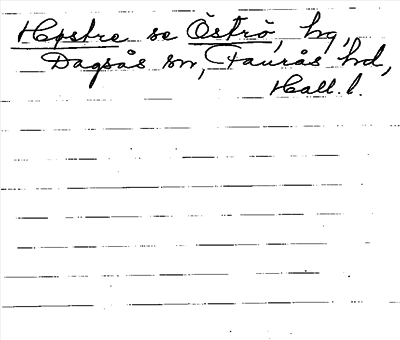 Hostre se Öströ, hg,
Dagsås sn, Faurås hd,
Hall. l.